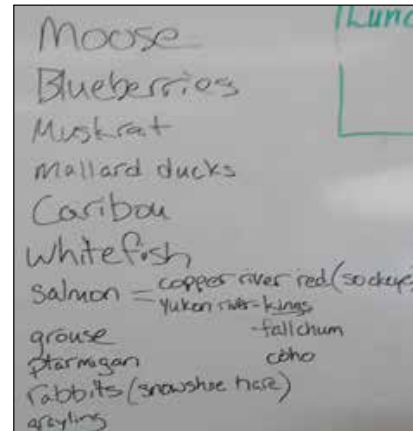 Lunc
Moose
Blueberries
Muskrat
Mallard ducks
Caribou
Whitefish
Salmon = copper river red (sockeye)
yukon river - kings
- fall chum
coho
grouse
ptarmigan
rabbits (snowshoe hare)
grayling